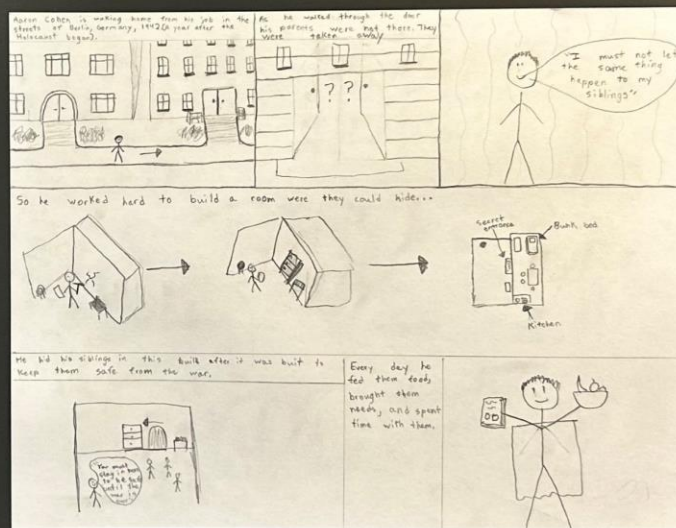 Aaron Cohen is making home from his job in the
streets of Berlin, Germany, 1942 (a year after the
Holocaust began).
As he waited through the door
his parents were not there. They
were taken away
? ?
"I must not let
the same thing
happen to my
siblings"
So he worked hard to build a room were they could hide...
secret
entrance
Bunk bed
Kitchen
He hid his siblings in this built after it was built to
keep them safe from the war.
"You must
stay in here
to be safe
until the
war is
over"
Every day he
fed them food,
brought them
needs, and spent
time with them.